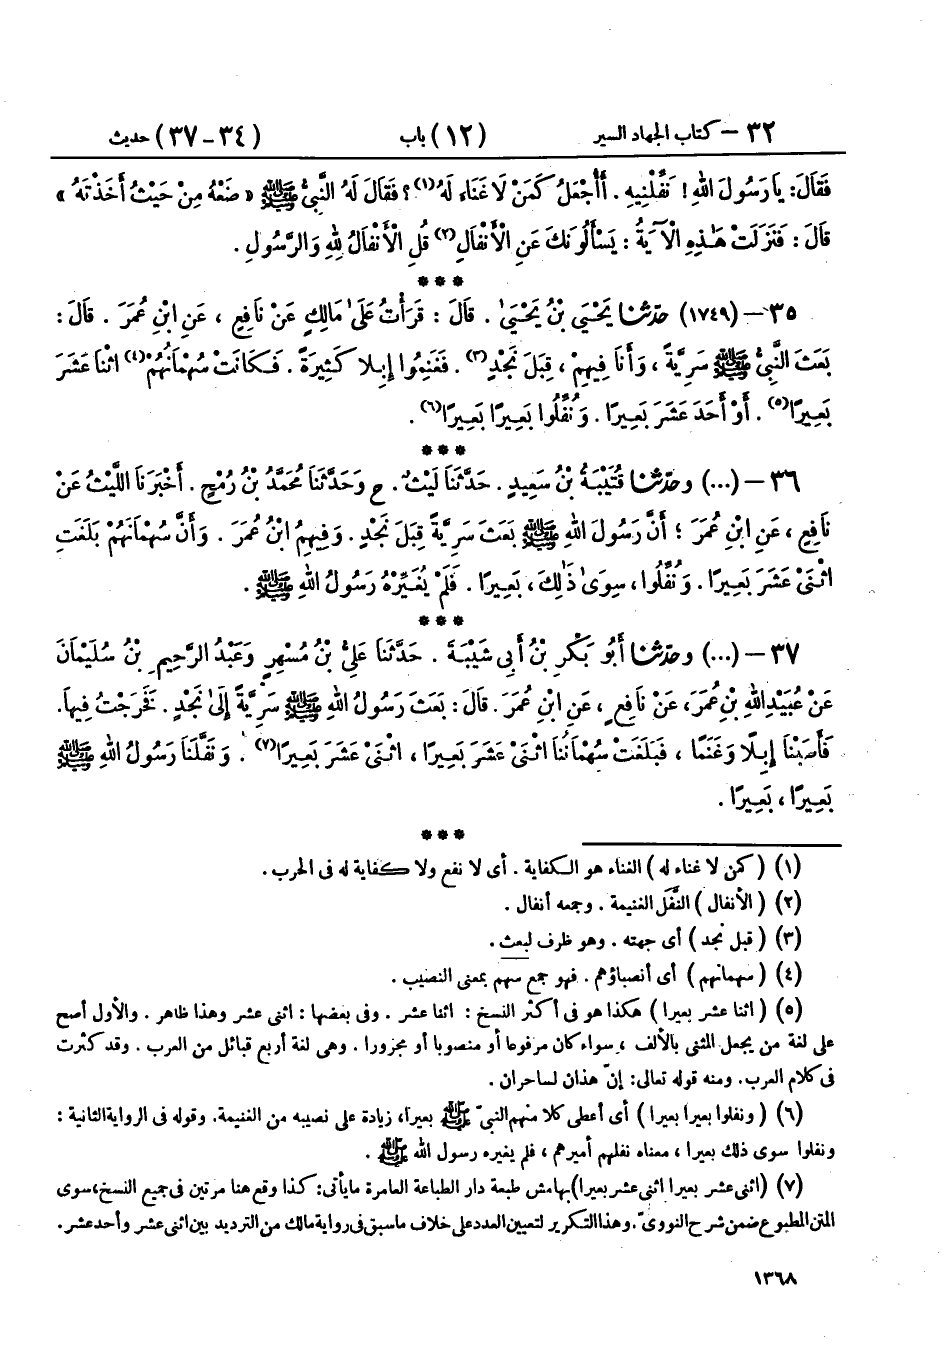 ٣٢ – كتاب الجهاد السير (١٢) باب (٣٤ – ٣٧) حديث
فَقَالَ: يَا رَسُولَ اللهِ! نَفِّلْنِيهِ. أَأُجْعَلُ كَمَنْ لَا غَنَاءَ لَهُ(١)؟ فَقَالَ لَهُ النَّبِيُّ ﷺ « ضَعْهُ مِنْ حَيْثُ أَخَذْتَهُ »
قَالَ: فَنَزَلَتْ هٰذِهِ الْآيَةُ: يَسْأَلُونَكَ عَنِ الْأَنْفَالِ(٢) قُلِ الْأَنْفَالُ لِلّٰهِ وَالرَّسُولِ.
***
٣٥ – (١٧٤٩) حَدَّثَنَا يَحْيَىٰ بْنُ يَحْيَىٰ. قَالَ: قَرَأْتُ عَلَىٰ مَالِكٍ عَنْ نَافِعٍ، عَنِ ابْنِ عُمَرَ. قَالَ:
بَعَثَ النَّبِيُّ ﷺ سَرِيَّةً، وَأَنَا فِيهِمْ، قِبَلَ نَجْدٍ(٣). فَغَنِمُوا إِبِلًا كَثِيرَةً. فَكَانَتْ سُهْمَانُهُمْ(٤) اثْنَا عَشَرَ
بَعِيرًا(٥). أَوْ أَحَدَ عَشَرَ بَعِيرًا. وَنُفِّلُوا بَعِيرًا بَعِيرًا(٦).
***
٣٦ – (...) وحَدَّثَنَا قُتَيْبَةُ بْنُ سَعِيدٍ. حَدَّثَنَا لَيْثٌ. ح وَحَدَّثَنَا مُحَمَّدُ بْنُ رُمْحٍ. أَخْبَرَنَا اللَّيْثُ عَنْ
نَافِعٍ، عَنِ ابْنِ عُمَرَ؛ أَنَّ رَسُولَ اللهِ ﷺ بَعَثَ سَرِيَّةً قِبَلَ نَجْدٍ. وَفِيهِمُ ابْنُ عُمَرَ. وَأَنَّ سُهْمَانَهُمْ بَلَغَتِ
اثْنَىْ عَشَرَ بَعِيرًا. وَنُفِّلُوا، سِوَىٰ ذٰلِكَ، بَعِيرًا. فَلَمْ يُغَيِّرْهُ رَسُولُ اللهِ ﷺ.
***
٣٧ – (...) وحَدَّثَنَا أَبُو بَكْرِ بْنُ أَبِي شَيْبَةَ. حَدَّثَنَا عَلِيُّ بْنُ مُسْهِرٍ وَعَبْدُ الرَّحِيمِ بْنُ سُلَيْمَانَ
عَنْ عُبَيْدِ اللهِ بْنِ عُمَرَ، عَنْ نَافِعٍ، عَنِ ابْنِ عُمَرَ. قَالَ: بَعَثَ رَسُولُ اللهِ ﷺ سَرِيَّةً إِلَىٰ نَجْدٍ. فَخَرَجْتُ فِيهَا.
فَأَصَبْنَا إِبِلًا وَغَنَمًا، فَبَلَغَتْ سُهْمَانُنَا اثْنَىْ عَشَرَ بَعِيرًا، اثْنَىْ عَشَرَ بَعِيرًا(٧). وَنَفَّلَنَا رَسُولُ اللهِ ﷺ
بَعِيرًا، بَعِيرًا.
***
(١) (كمن لا غناء له) الغناء هو الكفاية. أى لا نفع ولا كفاية له فى الحرب.
(٢) (الأنفال) النَّفَل الغنيمة. وجمعه أنفال.
(٣) (قبل نجد) أى جهته. وهو ظرف لبعث.
(٤) (سهمانهم) أى أنصباؤهم. فهو جمع سهم بمعنى النصيب.
(٥) (اثنا عشر بعيرا) هكذا هو فى أكثر النسخ: اثنا عشر. وفى بعضها: اثنى عشر وهذا ظاهر. والأول أصح
على لغة من يجعل المثنى بالألف، سواء كان مرفوعا أو منصوبا أو مجرورا. وهى لغة أربع قبائل من العرب. وقد كثرت
فى كلام العرب. ومنه قوله تعالى: إنّ هذان لساحران.
(٦) (ونفلوا بعيرا بعيرا) أى أعطى كلا منهم النبىّ ﷺ بعيرا، زيادة على نصيبه من الغنيمة. وقوله فى الرواية الثانية:
ونفلوا سوى ذلك بعيرا، معناه نفلهم أميرهم، فلم يغيره رسول الله ﷺ.
(٧) (اثنى عشر بعيرا اثنى عشر بعيرا) بهامش طبعة دار الطباعة العامرة ما يأتى: كذا وقع هنا مرتين فى جميع النسخ، سوى
المتن المطبوع ضمن شرح النووىّ. وهذا التكرير لتعيين العدد على خلاف ما سبق فى رواية مالك من الترديد بين اثنى عشر وأحد عشر.
١٣٦٨